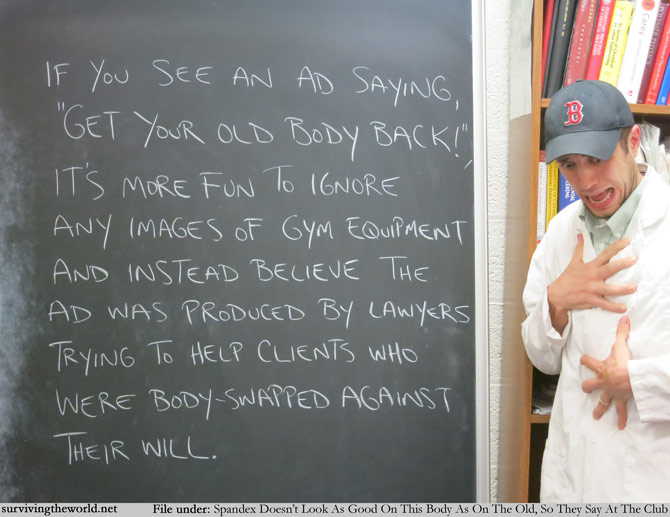 IF YOU SEE AN AD SAYING,
"GET YOUR OLD BODY BACK!",
IT'S MORE FUN TO IGNORE
ANY IMAGES OF GYM EQUIPMENT
AND INSTEAD BELIEVE THE
AD WAS PRODUCED BY LAWYERS
TRYING TO HELP CLIENTS WHO
WERE BODY-SWAPPED AGAINST
THEIR WILL.
B
Carey
survivingtheworld.net File under: Spandex Doesn't Look As Good On This Body As On The Old, So They Say At The Club